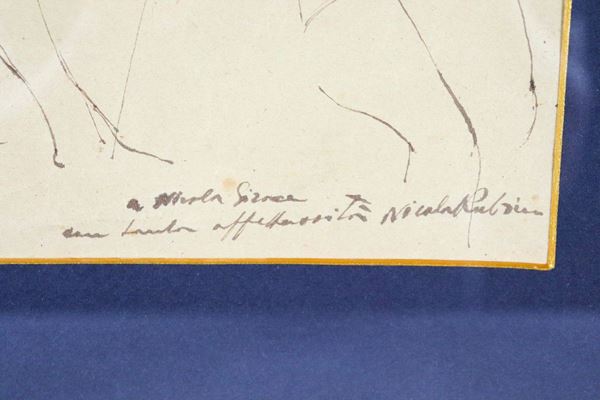 a Nicola Sirose
con tanta affettuosità Nicola Rubino